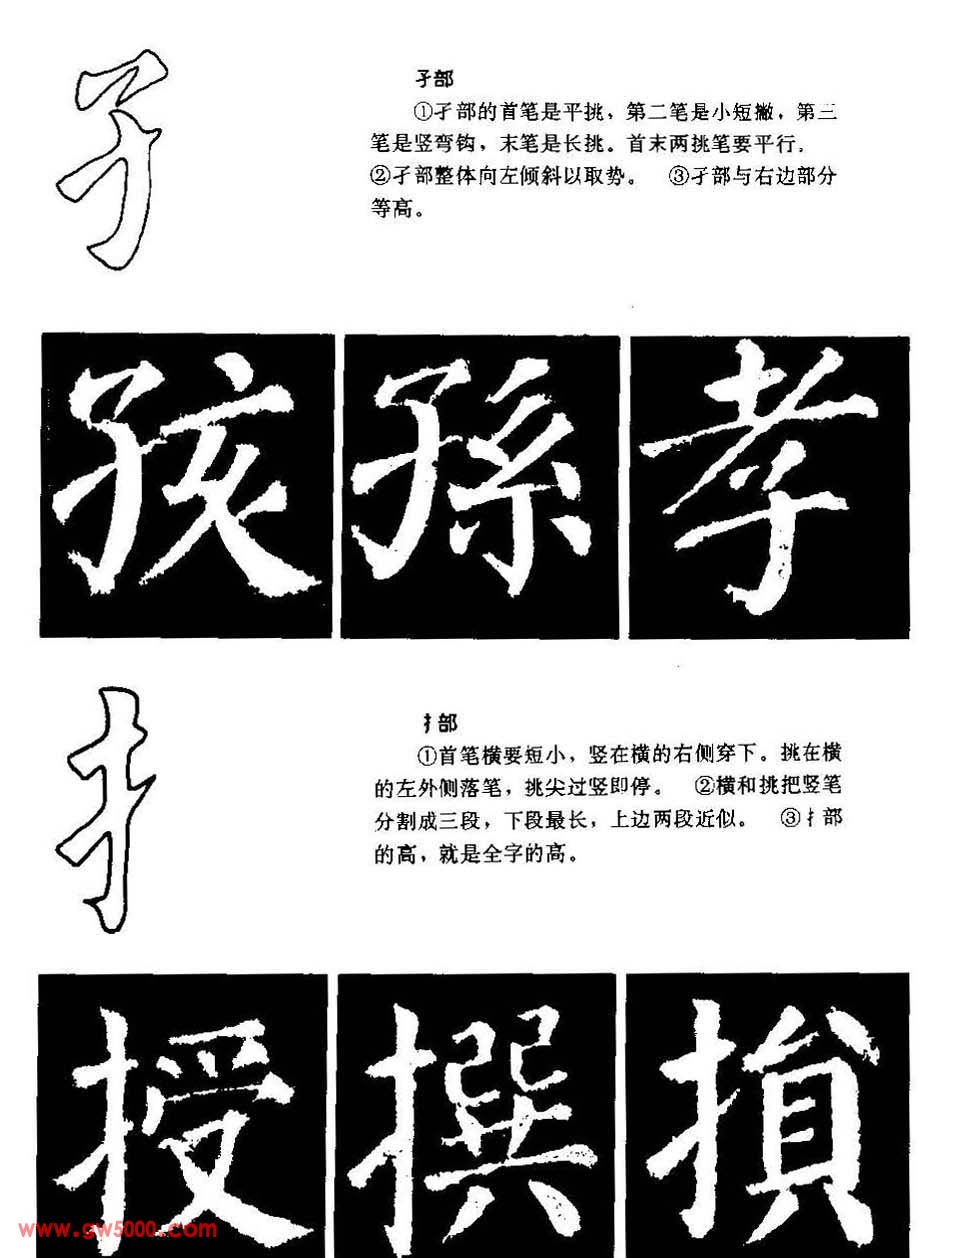 孑部
①孑部的首笔是平挑，第二笔是小短撇，第三
笔是竖弯钩，末笔是长挑。首末两挑笔要平行.
②孑部整体向左倾斜以取势。 ③孑部与右边部分
等高。
孩 孫 孝
扌部
①首笔横要短小，竖在横的右侧穿下。挑在横
的左外侧落笔，挑尖过竖即停。 ②横和挑把竖笔
分割成三段，下段最长，上边两段近似。 ③扌部
的高，就是全字的高。
授 撰 損
www.gw5000.com